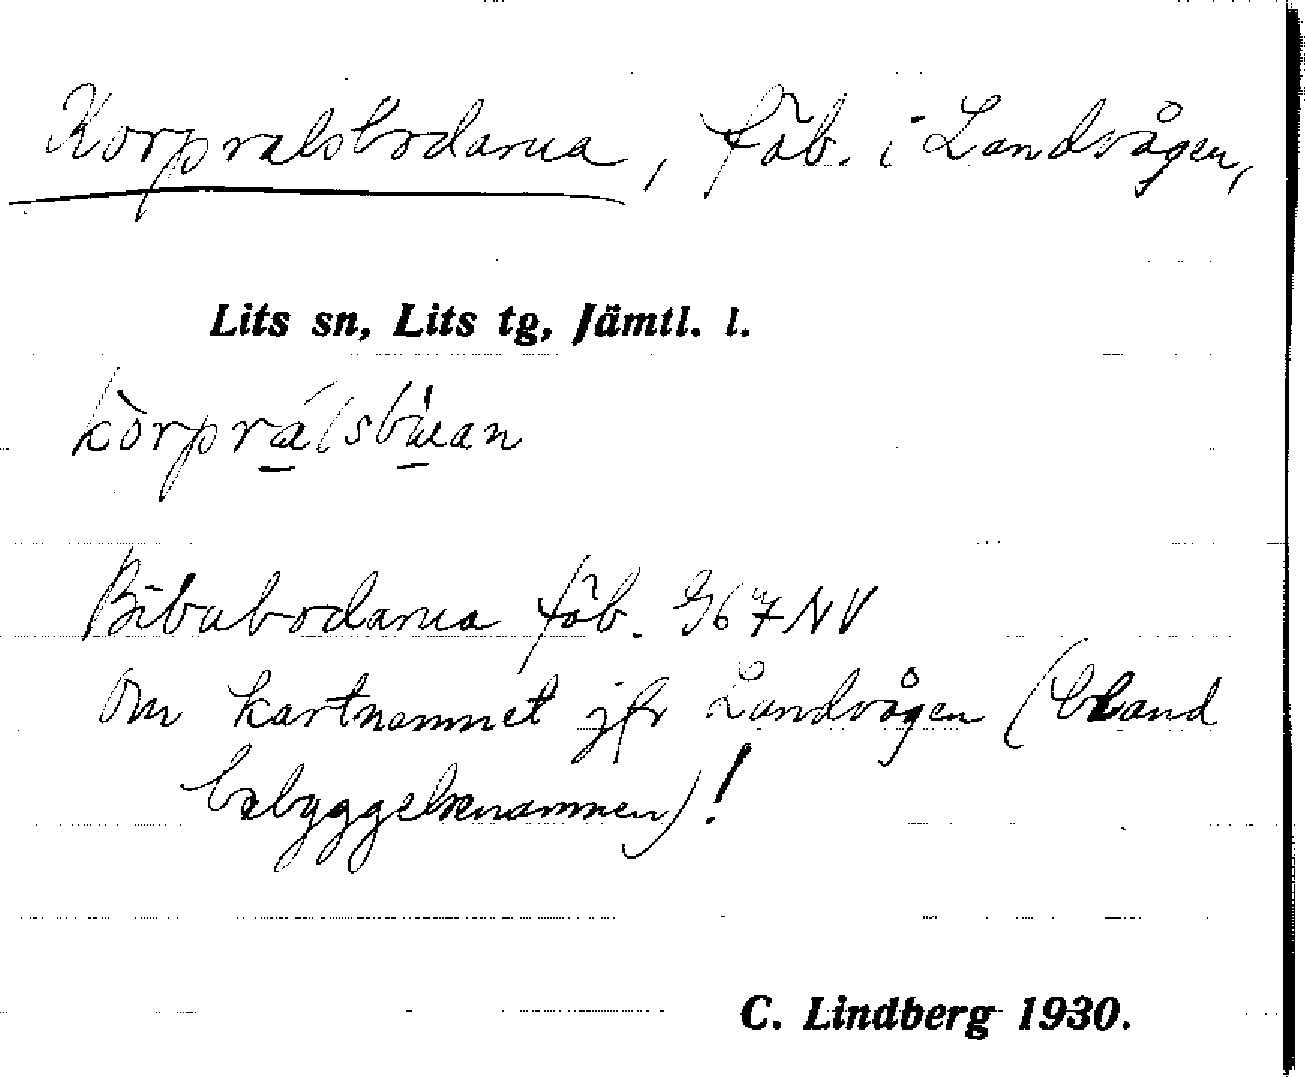 Korpralsbodarna, fäb. i Landvågen,
Lits sn, Lits tg, Jämtl. l.
kòrprálsbùan
Bibubodarna fäb. 967NV
Om kartnamnet jfr Landvågen (bland
bebyggelsenamnen)!
C. Lindberg 1930.